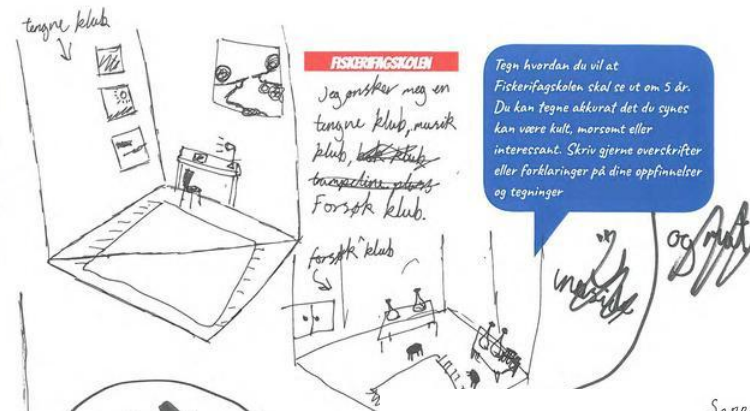 tengne klub
FISKERIFAGSKOLEN
Jeg ønsker meg en
tengne klub, musik
klub,
trampoline plass
Forsøk klub.
forsøk klub
Tegn hvordan du vil at
Fiskerifagskolen skal se ut om 5 år.
Du kan tegne akkurat det du synes
kan være kult, morsomt eller
interessant. Skriv gjerne overskrifter
eller forklaringer på dine oppfinnelser
og tegninger
og